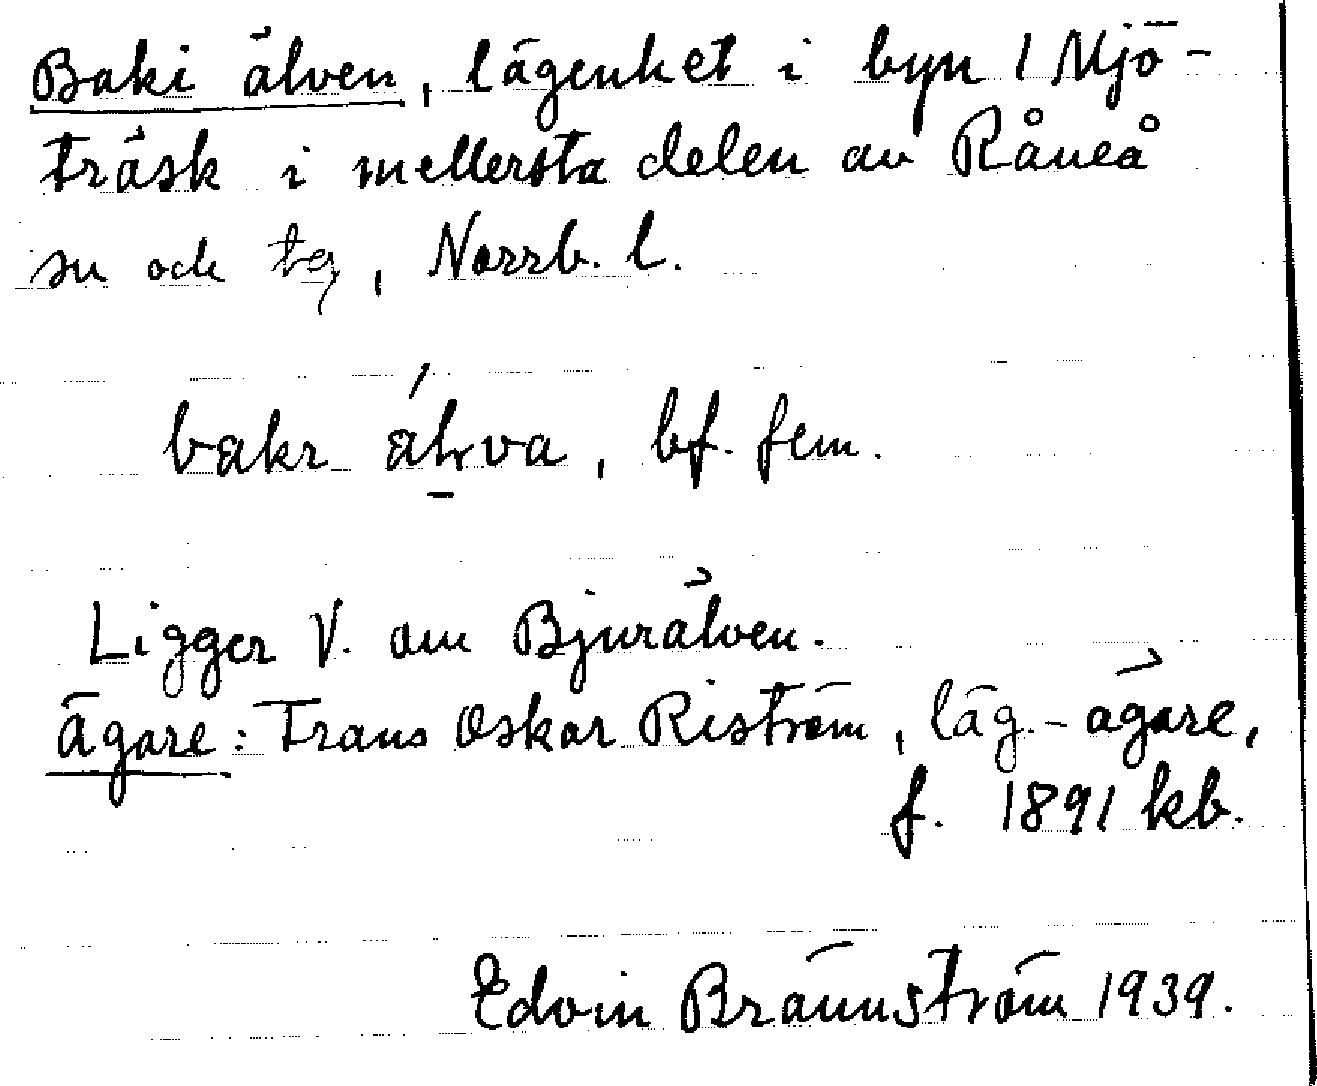 Baki älven, lägenhet i byn 1 Mjö-
träsk i mellersta delen av Råneå
sn och tg, Norrb. l.
bakı álva, bf. fem.
Ligger V. om Bjurälven.
Ägare: Frans Oskar Riström, läg.-ägare,
f. 1891 kb.
Edvin Brännström 1939.